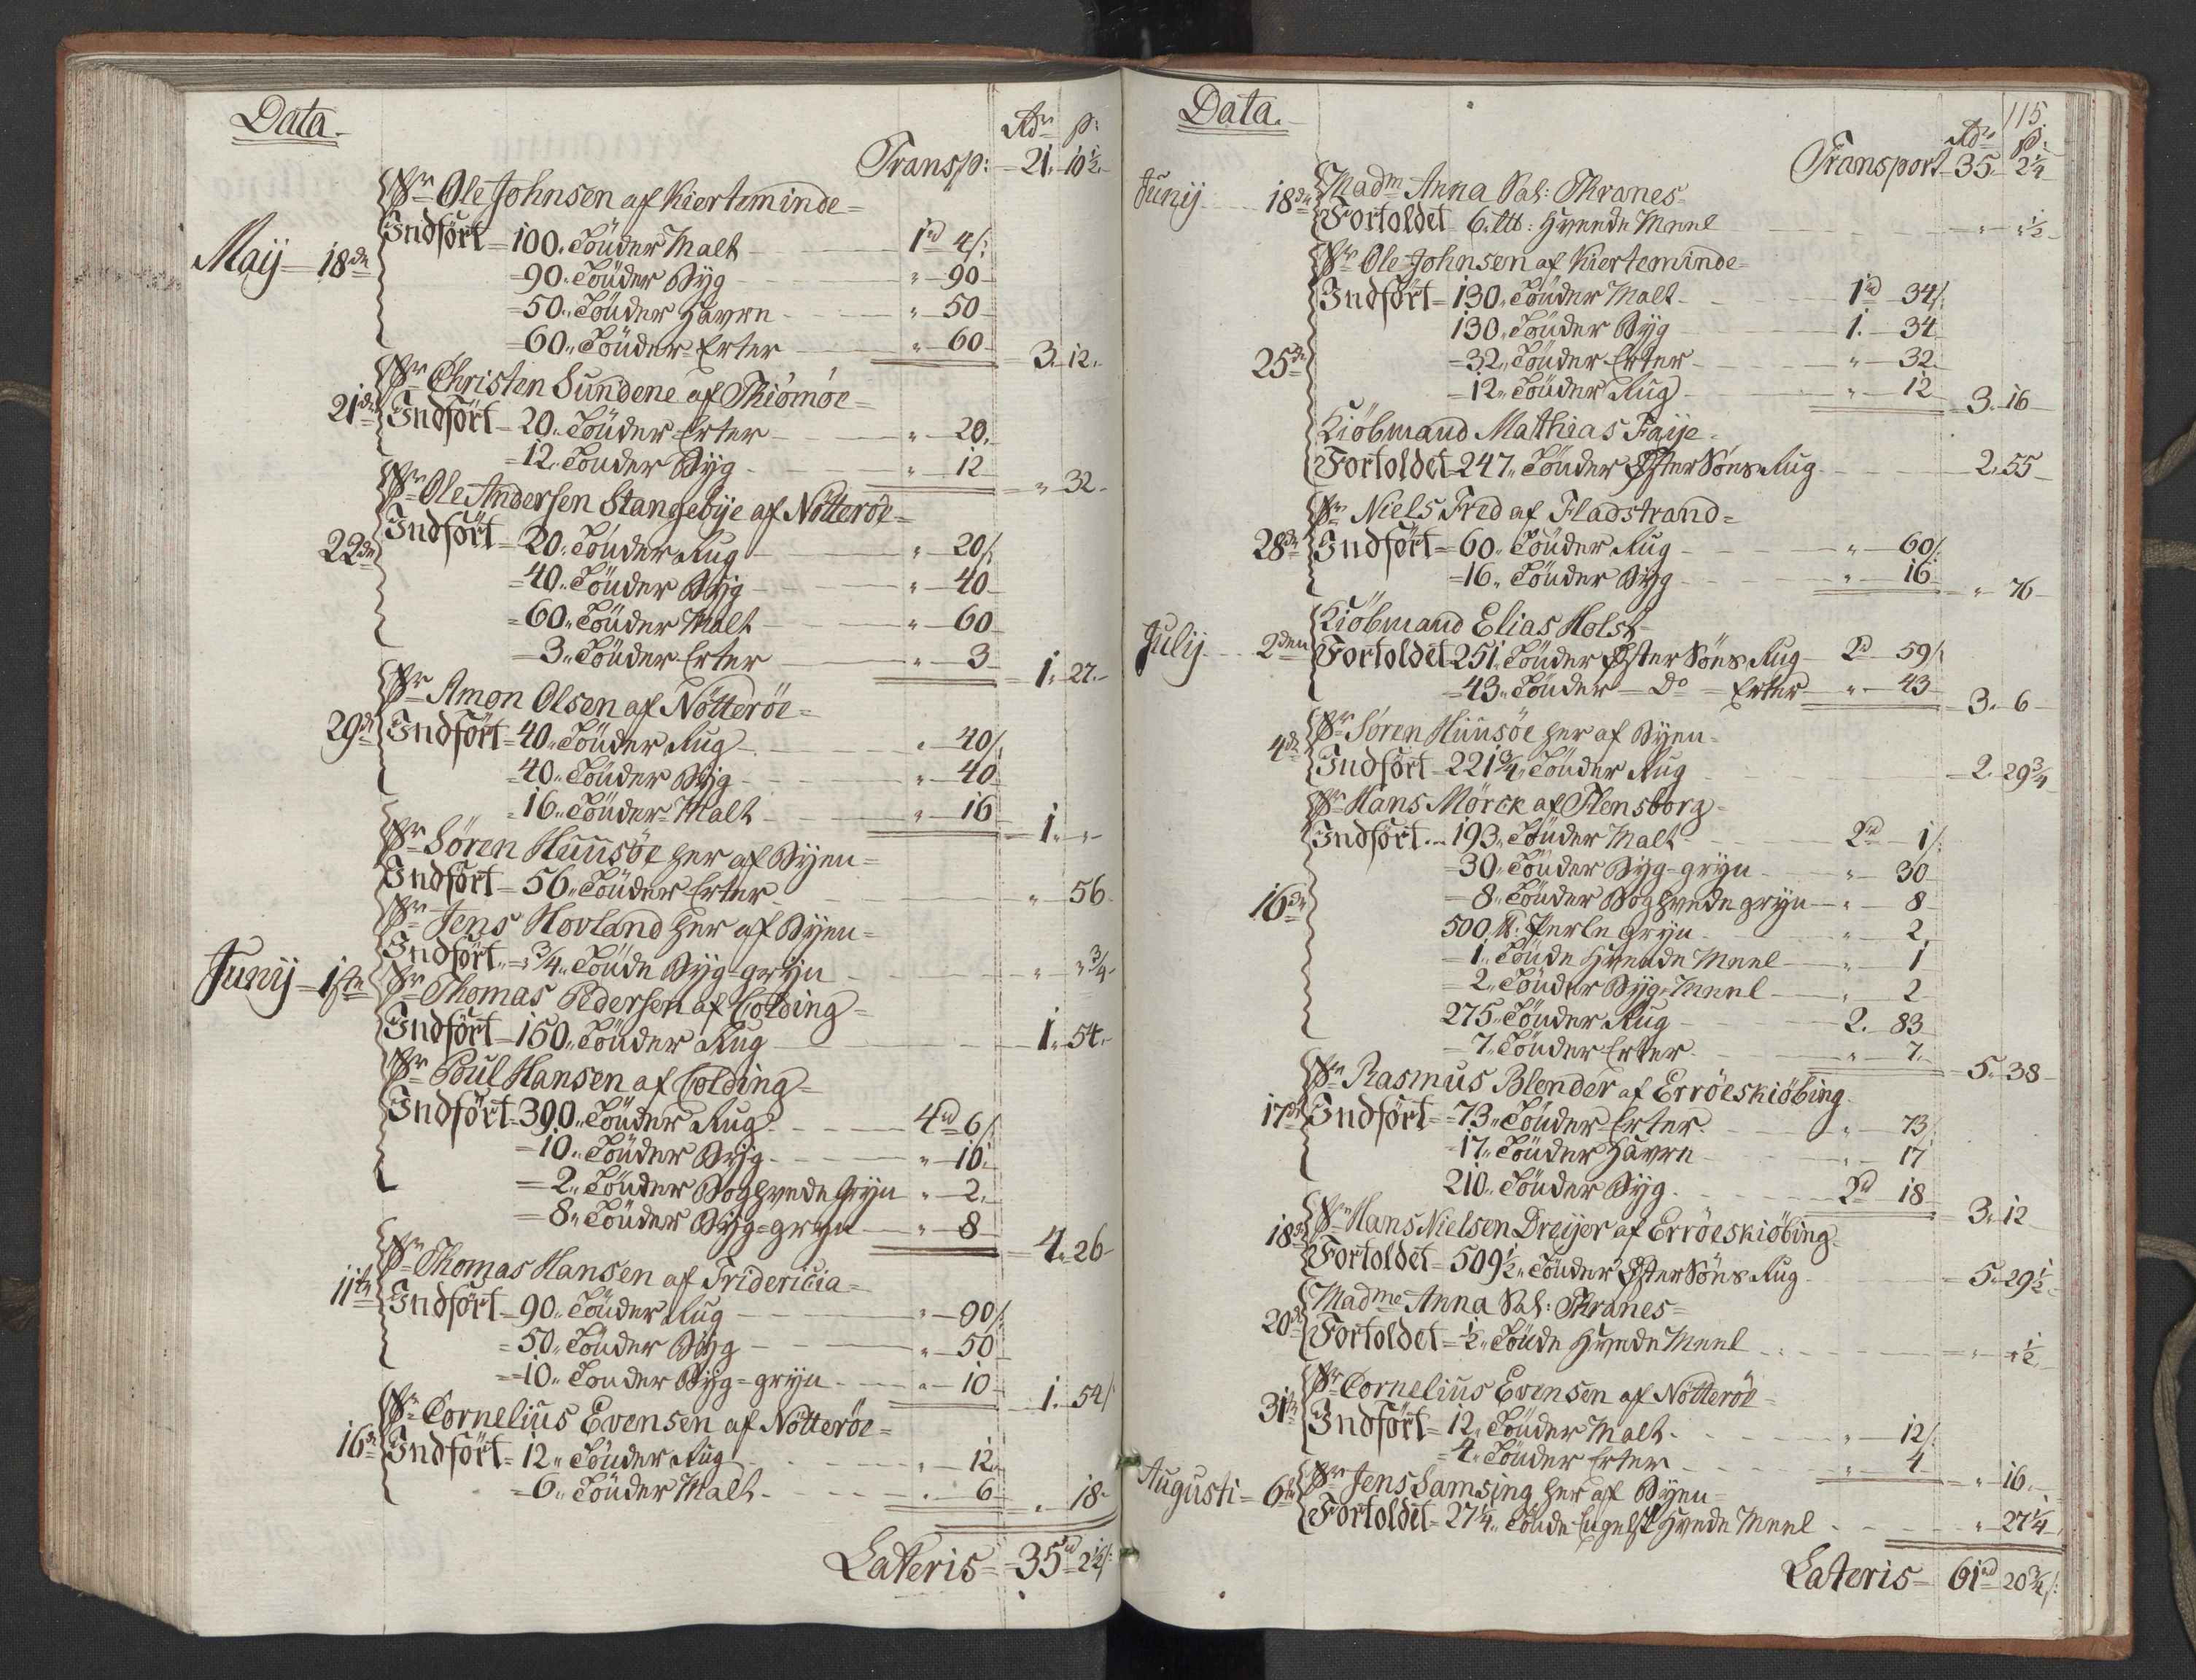 Data.
Rdr ß:
Transp: = 21. 10½.
Sr Ole Johnsen af Kierteminde =
Maij 18de Indført = 100. Tönder Malt 1rd 4ß:
= 90. Tönder Byg " 90
= 50. Tönder Havre " 50
= 60. Tönder Erter " 60 3. 12.
Sr Christen Sundene af Thiömöe =
21de Indført = 20. Tönder Erter " 20.
= 12. Tönder Byg " 12 " 32.
Sr Ole Andersen Stangebye af Nötteröe =
22de Indført = 20. Tönder Rug " 20ß
= 40. Tönder Byg " 40
= 60. Tönder Malt " 60
= 3. Tönder Erter " 3 1. 27.
Sr Amon Olsen af Nötteröe =
29de Indført = 40. Tönder Rug " 40ß
= 40. Tönder Byg " 40
= 16. Tönder Malt " 16 1. "
Sr Sören Huusöe her af Byen =
Indført = 56. Tönder Erter " 56.
Sr Jens Hovland her af Byen =
Indført = ¾. Tönde Byg=gryn " " ¾
Junij 1ste Sr Thomas Pedersen af Colding =
Indført = 150. Tönder Rug 1. 54.
Sr Poul Hansen af Colding =
Indført = 390. Tönder Rug 4rd 6ß
= 10. Tönder Byg " 10.
= 2. Tönder Boghvede Gryn " 2.
= 8. Tönder Byg=gryn " 8 4. 26
Sr Thomas Hansen af Fridericia =
11te Indført = 90. Tönder Rug " 90ß:
= 50. Tönder Byg " 50
= 10. Tönder Byg=gryn " 10 1. 54ß
Sr Cornelius Evensen af Nötteröe =
16de Indført = 12. Tönder Rug " 12.
= 6. Tönder Malt " 6 " 18.
Lateris = 35rd 2¼ß:
115.
Data.
Rdr ß:
Transport 35. 2¼
Junij 18de Madm Anna Sal: Thranes =
Fortoldet 6. ltb: Hveede Meel " " ½
Sr Ole Johnsen af Kierteminde =
Indført = 130. Tönder Malt 1rd 34ß:
130. Tönder Byg 1. 34
25de = 32. Tönder Erter " 32
= 12. Tönder Rug " 12 3. 16
Kiöbmand Mathias Faije =
Fortoldet 247. Tönder Øster Söns Rug 2. 55
Sr Niels Fred af Fladstrand =
28de Indført = 60. Tönder Rug " 60ß:
= 16. Tönder Byg " 16 " 76
Kiöbmand Elias Holst
Julij 2den Fortoldet 251. Tönder Øster Söns Rug 2rd 59ß:
= 43. Tönder Do = Erter " 43 3. 6
Sr Sören Huusöe her af Byen =
4de Indført 221¾. Tönder Rug 2. 29¾
Sr Hans Mörck af Flensborg =
Indført = 193. Tönder Malt 2rd 1ß:
= 30. Tönder Byg=gryn " 30
16de = 8. Tönder Boghvede gryn " 8
500 ℔: Perle gryn " 2
= 1. Tönde Hveede Meel " 1
= 2. Tönder Byg=Meel " 2
275. Tönder Rug 2. 83
= 7. Tönder Erter " 7. 5. 38
Sr Rasmus Blender af Erröeskiöbing
17de Indført = 73. Tönder Erter " 73ß
17. Tönder Havre " 17
210. Tönder Byg 2rd 18 3. 12
18de Sr Hans Nielsen Dreijer af Erröeskiöbing =
Fortoldet = 509½. Tönder Øster Söns Rug 5. 29½
Madme Anna Sal: Thranes =
20de Fortoldet = ½. Tönde Hvede Meel " " ½
Sr Cornelius Evensen af Nötteröe =
31te Indført = 12. Tönder Malt " 12ß:
= 4. Tönder Erter " 4 " 16.
Augusti = 6te Sr Jens Samsing her af Byen =
Fortoldet = 27¼. Tönde Engelst Hvede Meel " 27¼
Lateris = 61rd 20¾ß: